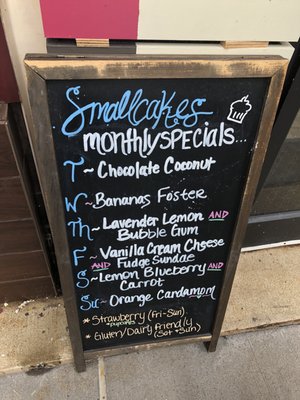 Smallcakes
monthly SPECIALS...
T~Chocolate Coconut
W~Bananas Foster
Th~Lavender Lemon AND
Bubble Gum
F~Vanilla Cream Cheese
AND Fudge Sundae
S~Lemon Blueberry AND
Carrot
Su~Orange Cardamom
* Strawberry (Fri-Sun)
* Gluten/Dairy friendly
(Sat + Sun)